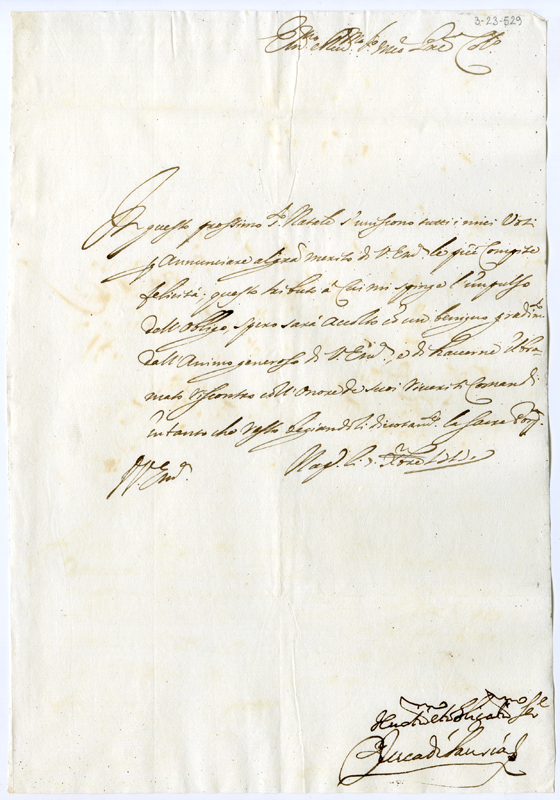 3-23-529
Em.mo e Rev.mo S.r mio P.ne Col.mo
In questo prossimo S. Natale s'uniscono tutti i miei Voti
p Annunciare al gra merito di V. Em.a le più Compite
felicità; questo tributo à Cui mi spinge l'impulso
dell'Obligo, spero sarà Accolto co un benigno gradim.to
dall'Animo generoso di V. Em.a, e di haverne il bra-
mato riscontro coll'Onore de suoi Veneriti Comandi
intanto che resto baciandoli divotam.te la Sacra Porp.a
V. Em.a
Nap. li
Hu.mo Div.mo et Obligat.mo Ser.e
Duca di Lauria